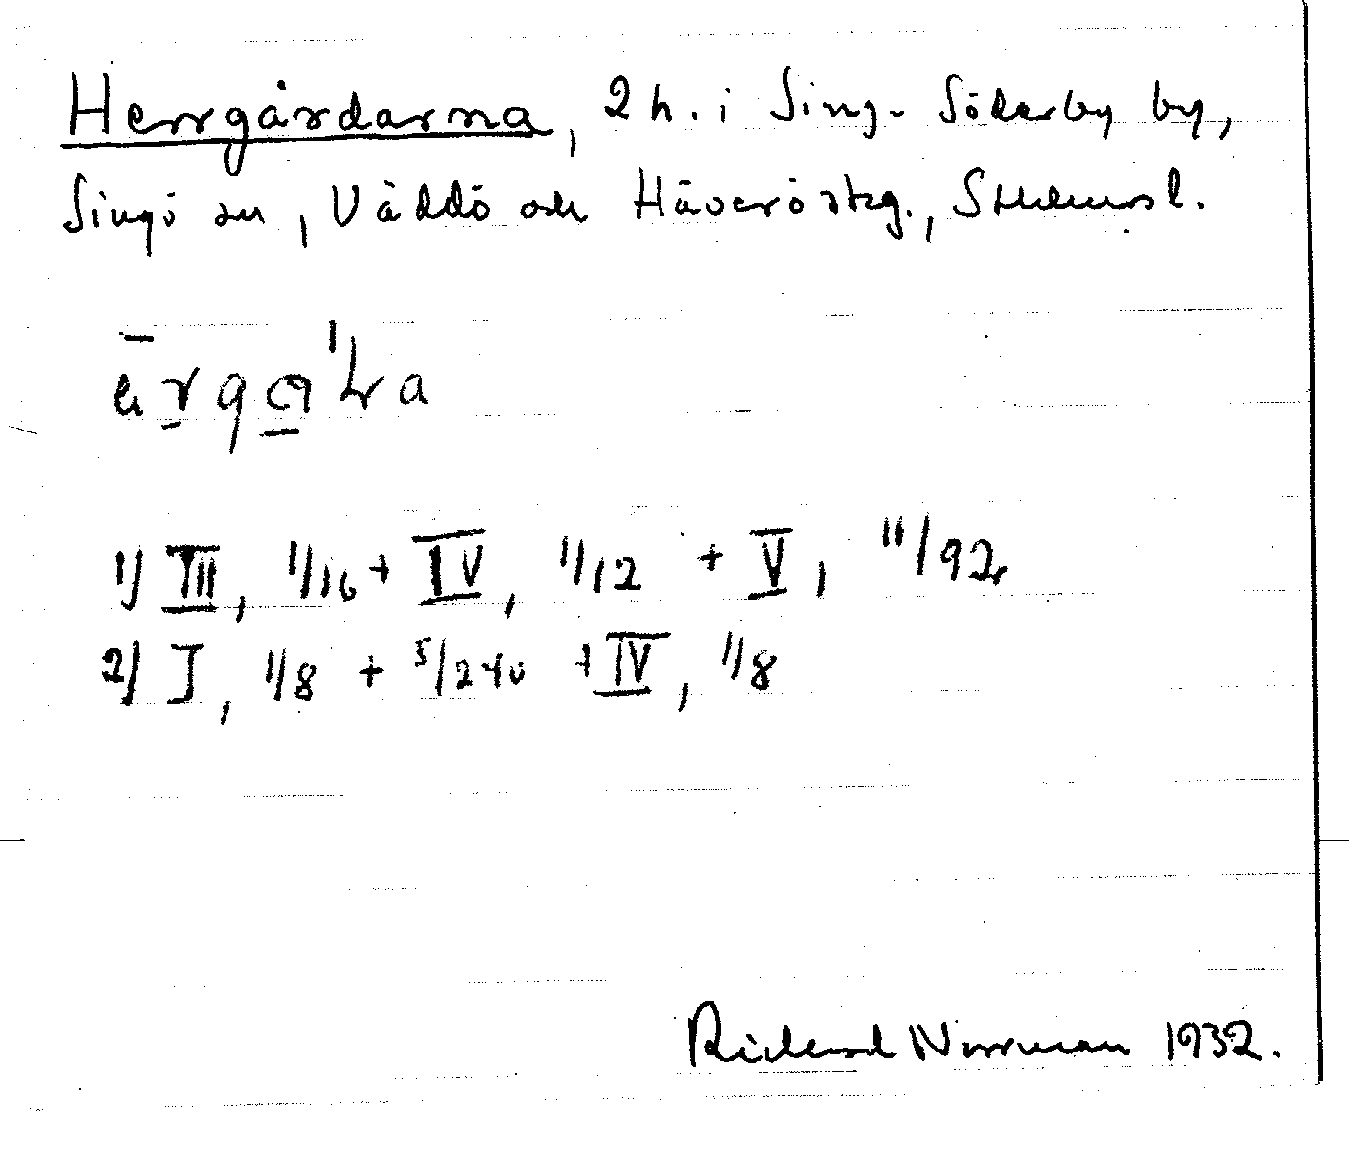 Herrgårdarna, 2 h. i Sing-Söderby by,
Singö sn, Väddö och Häverö skg., Sthlmsl.
1) III, 1/16 + IV, 1/12 + V, 11/92
2) I, 1/8 + 5/240 + IV, 1/8
Rickard Norrman 1932.